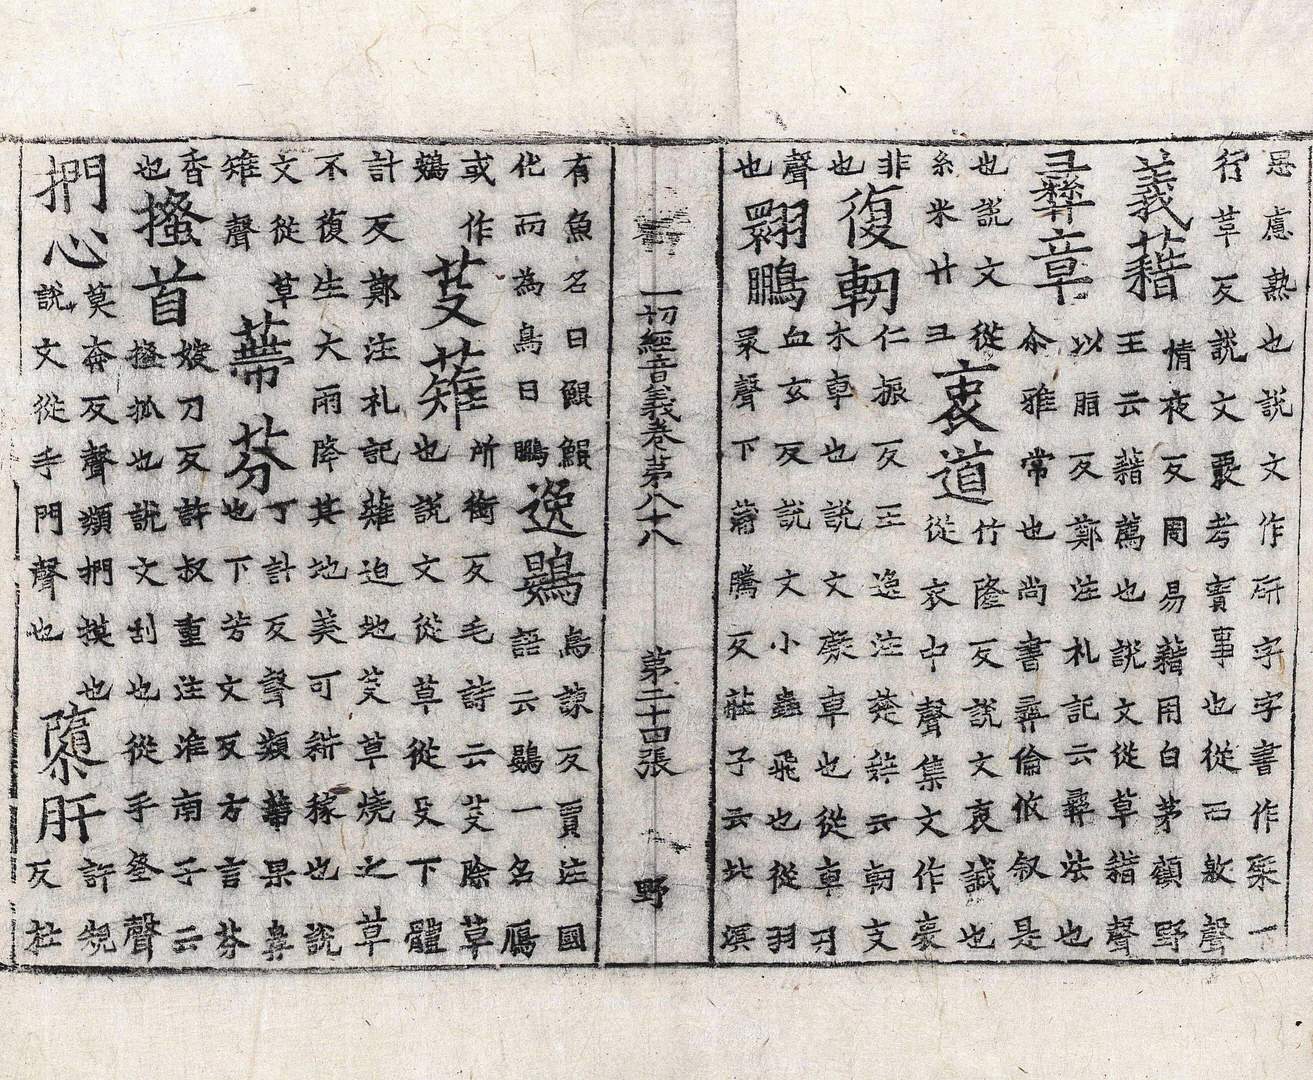 思慮熟也說文作㪿字字書作槩一
行革反說文覈考實事也從襾敫聲
義藉
情夜反周易藉用白茅顧野
王云藉薦也說文從草耤聲
彛章
以脂反鄭注礼記云彛法也
尒雅常也尚書彛倫攸叙是
也說文從
糸米廾彑
衷道
竹隆反說文衷誠也
從衣中聲集文作衷
非
也
復軔
仁振反王逸注楚辭云軔支
木車也說文礙車也從車刃
聲
也
翾鵬
血玄反說文小蟲飛也從羽
睘聲下蒲騰反莊子云北溟
一切經音義卷第八十八 第二十四張 野
有魚名曰鯤鯤
化而為鳥曰鵬
逸鷃
烏諫反賈注國
語云鷃一名鴈
或作
鴳
芟薙
所銜反毛詩云芟除草
也說文從草從殳下體
計反鄭注礼記薙迫地芟草燒之草
不復生大雨降其地美可耕稼也說
文從草
雉聲
蔕芬
丁計反聲類蔕果鼻
也下芳文反方言芬
香
也
搔首
嫂刀反許叔重注淮南子云
搔抓也說文刮也從手蚤聲
捫心
莫奔反聲類捫摸也
說文從手門聲也
隳肝
許規
反杜